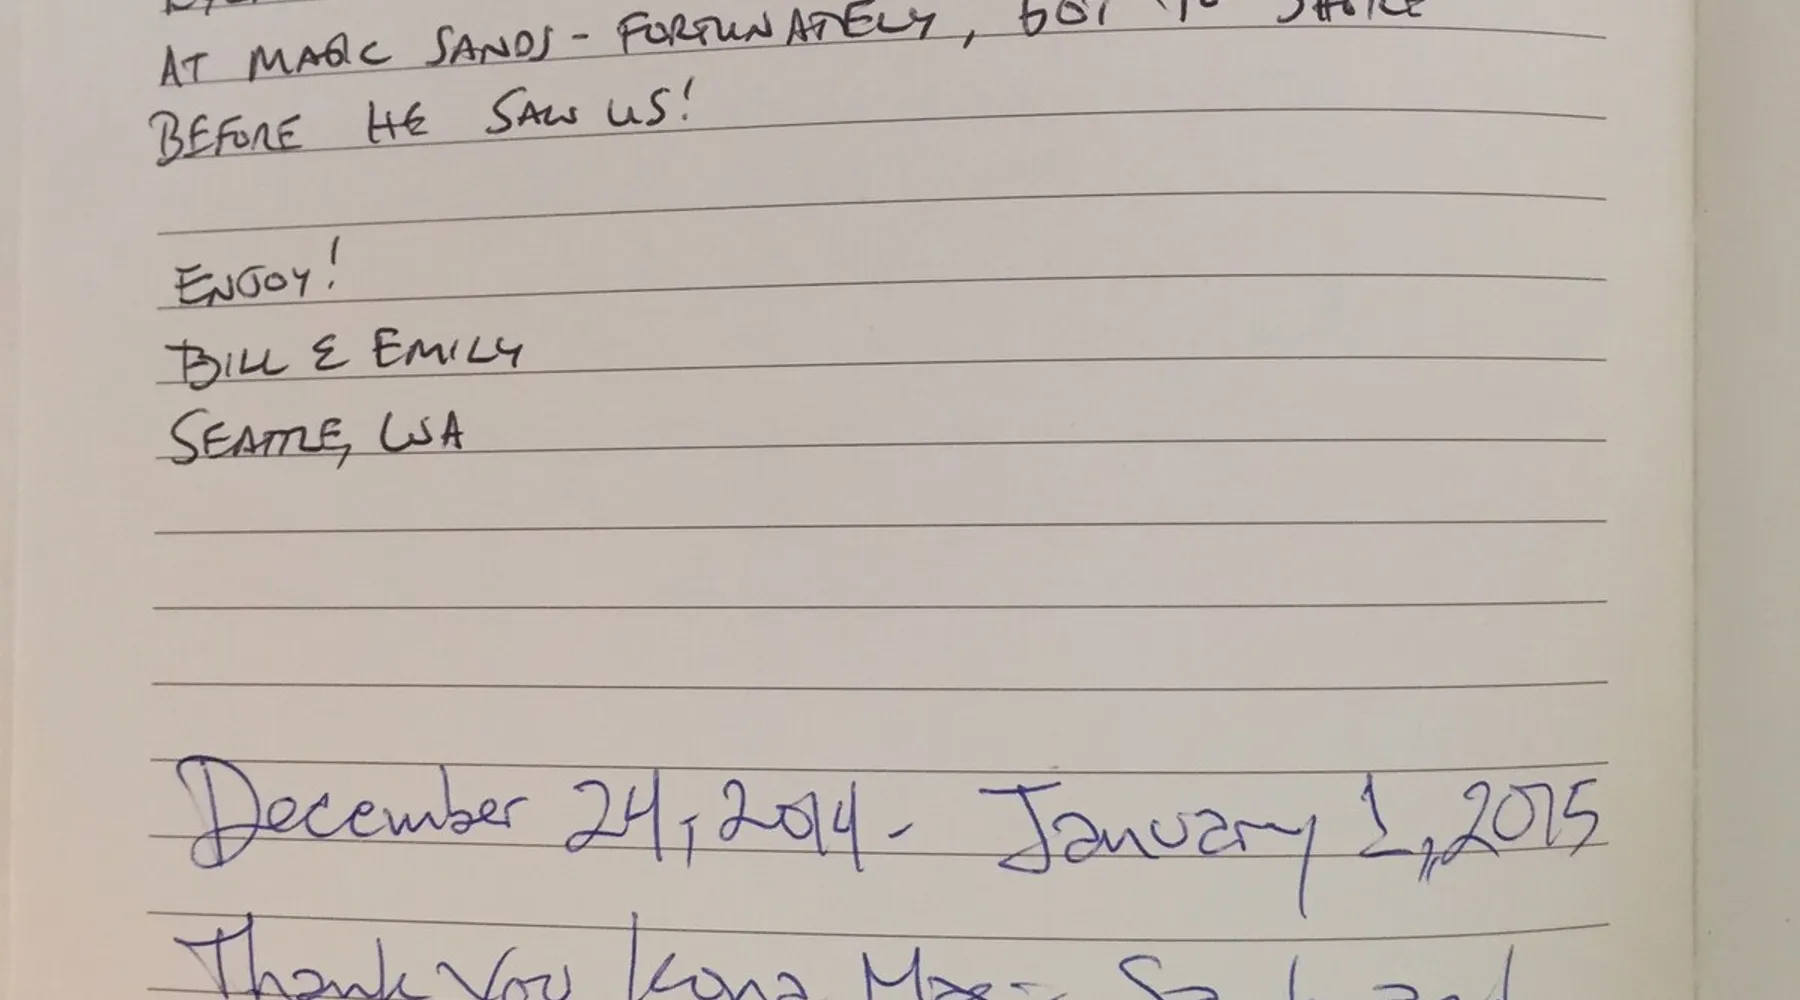 AT MAGIC SANDS - FORTUNATELY, GOT TO SHORE
BEFORE HE SAW US!
ENJOY!
BILL & EMILY
SEATTLE, WA
December 24, 2014 - January 1, 2015
Thank You Kona